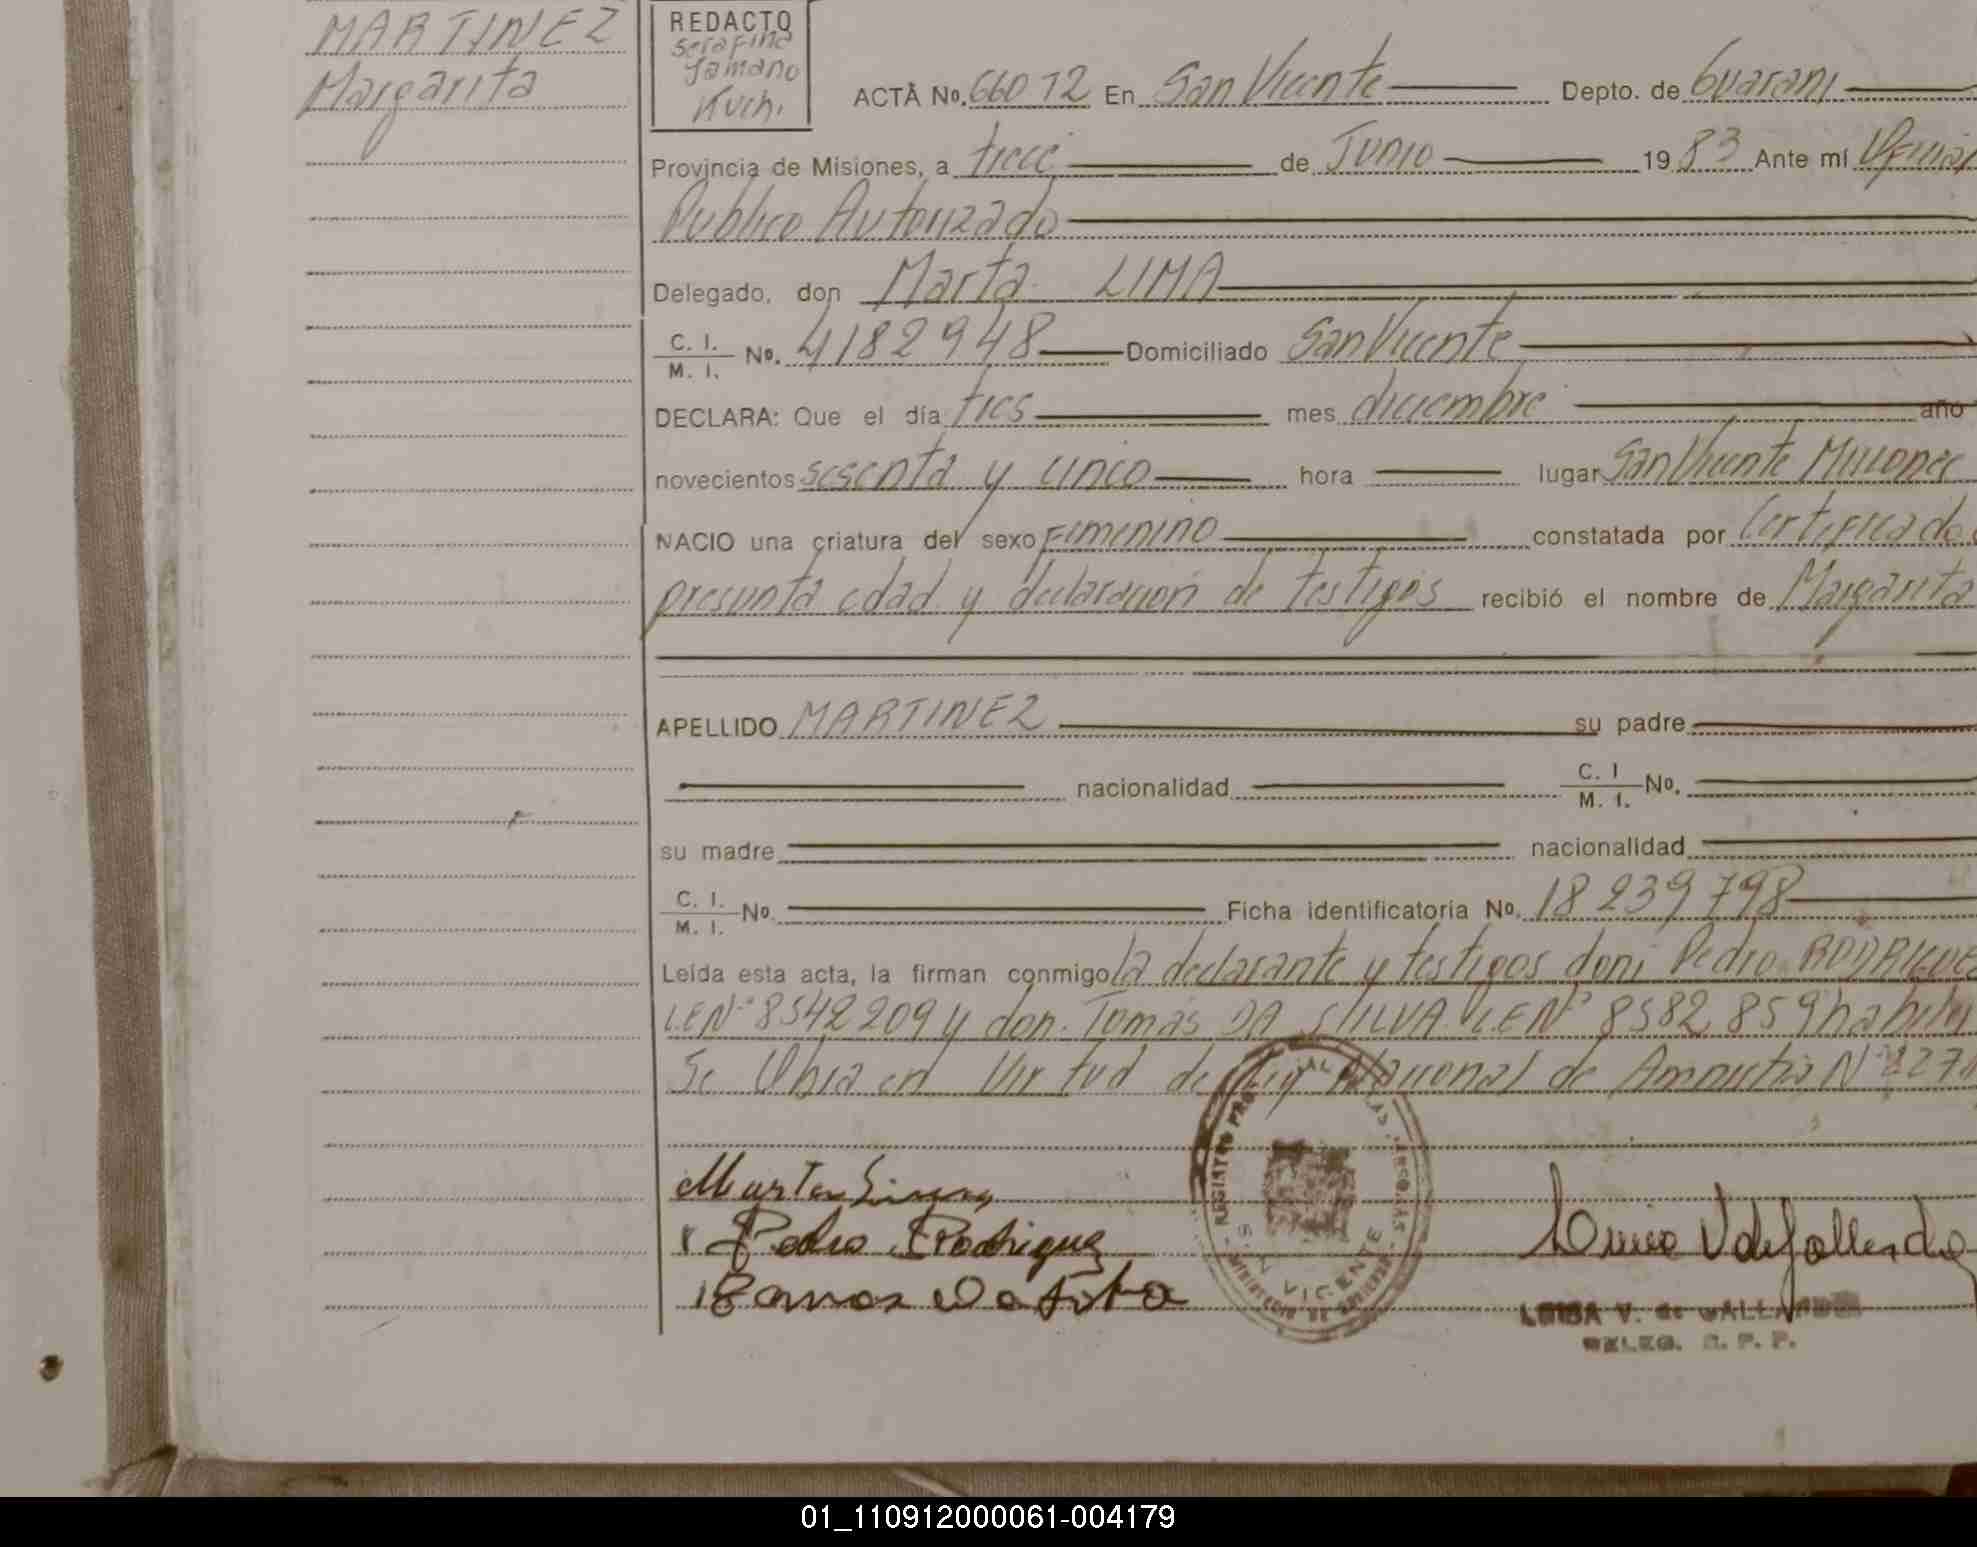 MARTINEZ
Margarita
REDACTO
Serafina
Tamano
Kuch.
ACTA No. 66072 En San Vicente Depto. de Guarani
Provincia de Misiones, a trece de Junio 1983 Ante mí Oficial
Publico Autorizado
Delegado, don Marta LIMA
C. I. / M. I. No. 4182948 Domiciliado San Vicente
DECLARA: Que el día tres mes diciembre año
novecientos sesenta y cinco hora lugar San Vicente Misiones
NACIO una criatura del sexo Femenino constatada por Certificado
presunta edad y declaración de testigos recibió el nombre de Margarita
APELLIDO MARTINEZ su padre
nacionalidad C. I / M. I. No.
su madre nacionalidad
C. I. / M. I. No. Ficha identificatoria No. 18239798
Leída esta acta, la firman conmigo la declarante y testigos don: Pedro RODRIGUE
L.E Nº 8542209 y don. Tomás DA SILVA L.E Nº 8582859 habiles
Se Obra en Virtud de Ley Nacional de Amnistia Nº 227
Marta Lima
Pedro Rodriguez
SAN VICENTE
LUISA V. de GALLARDO
DELEG. R. P. P.
01_110912000061-004179